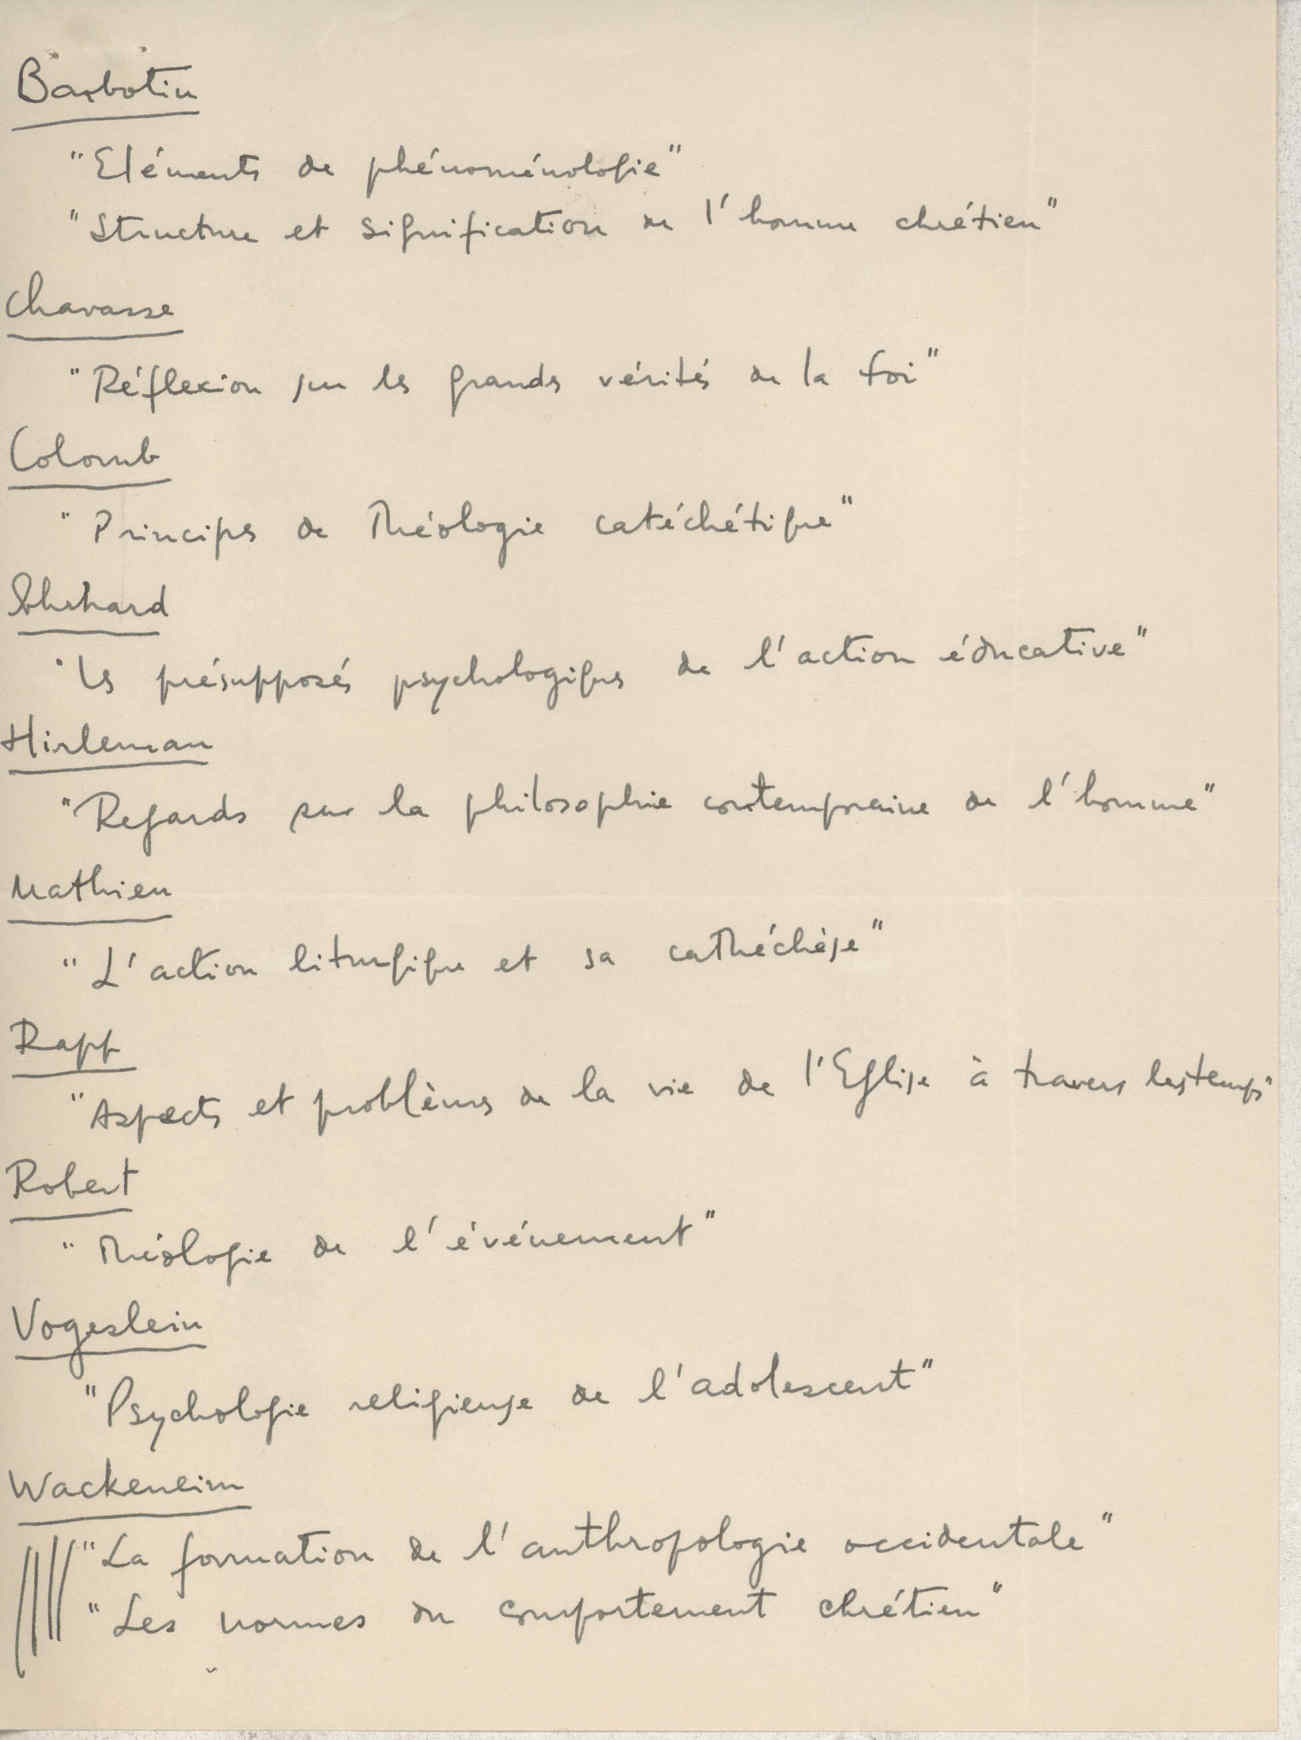 Barbotin
"Eléments de phénoménologie"
"Structure et signification de l'homme chrétien"
Chavasse
"Réflexion sur les grands vérités de la foi"
Colomb
"Principes de Théologie catéchétique"
"Les présupposés psychologiques de l'action éducative"
Hirleman
"Regards sur la philosophie contemporaine de l'homme"
Mathieu
"L'action liturgique et sa cathéchèse"
Rapp
"Aspects et problèmes de la vie de l'Eglise à travers les temps"
Robert
"Théologie de l'événement"
Vogeslein
"Psychologie religieuse de l'adolescent"
Wackeneim
"La formation de l'anthropologie occidentale"
"Les normes du comportement chrétien"